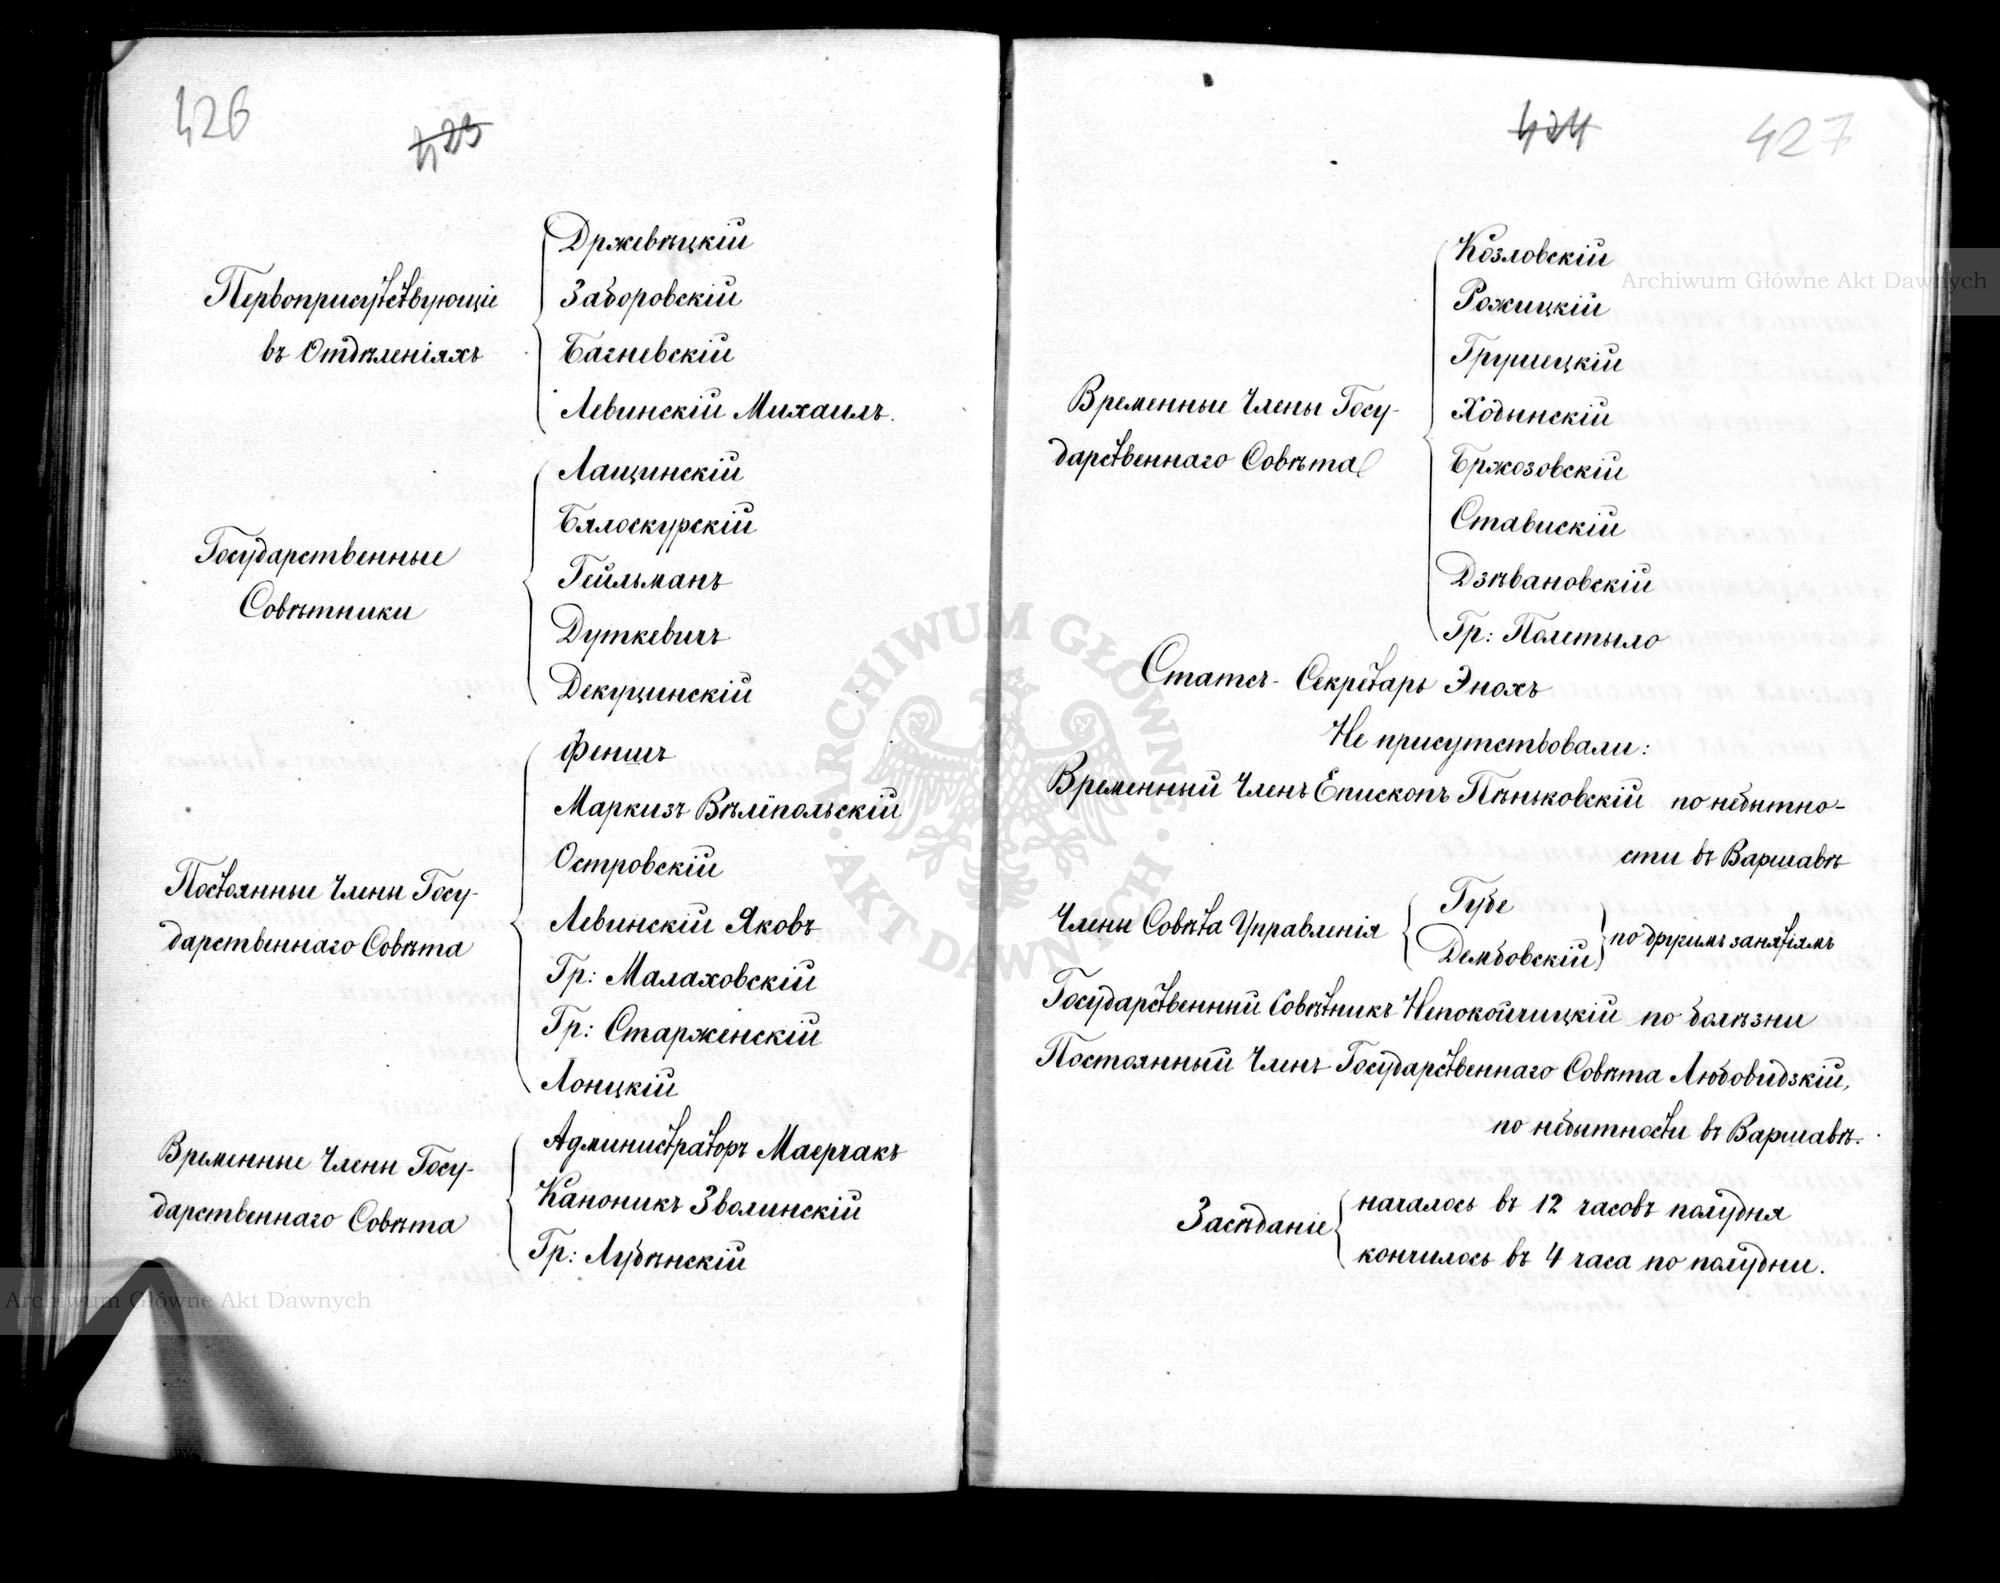 426
423
Первоприсутствующіе
въ Отдѣленіяхъ
Држевѣцкій
Заборовскій
Багневскій
Левинскій Михаилъ.
Государственные
Совѣтники
Лащинскій
Бялоскурскій
Гейльманъ
Дуткевичъ
Декуцинскій
Постоянные Члены Госу-
дарственнаго Совѣта
Феншъ
Маркизъ Вѣліопольскій
Островскій
Левинскій Яковъ
Гр: Малаховскій
Гр: Старженскій
Лонцкій
Временные Члены Госу-
дарственнаго Совѣта
Администраторъ Маерчакъ
Каноникъ Зволинскій
Гр: Лубѣнскій
424
427
Временные Члены Госу-
дарственнаго Совѣта
Козловскій
Рожицкій
Грушецкій
Ходынскій
Бржозовскій
Ставискій
Дзѣвановскій
Гр: Полетыло
Статсъ-Секретарь Энохъ
Не присутствовали:
Временный Членъ Епископъ Пѣньковскій по небытно-
сти въ Варшавѣ
Члены Совѣта Управленія
Губе
Дембовскій
по другимъ занятіямъ
Государственный Совѣтникъ Непокойчицкій по болѣзни
Постоянный Членъ Государственнаго Совѣта Любовидзкій,
по небытности въ Варшавѣ.
Засѣданіе
началось въ 12 часовъ полудня
кончилось въ 4 часа по полудни.
Archiwum Główne Akt Dawnych
Archiwum Główne Akt Dawnych
ARCHIWUM GŁÓWNE AKT DAWNYCH